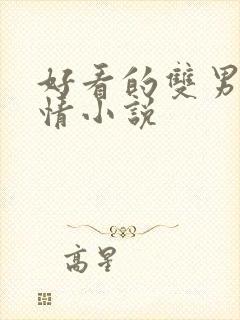 好看的雙男
情小說
高星